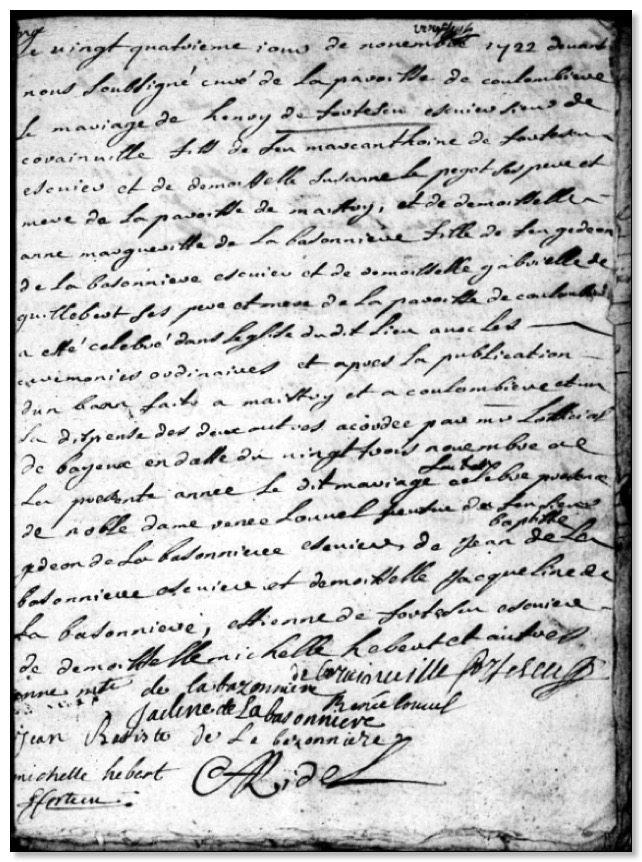 Le vingt quatrieme iour de novembre 1722 devant
nous soubsigné curé de la paroisse de coulombiere
le mariage de henry de fortescu escuier sieur de
covainville fils de feu marcanthoine de fortescu
escuier et de demoiselle susanne le pegot ses pere et
mere de la paroisse de maistry, et de demoiselle
anne margueritte de la basonniere fille de feu gedeon
de la basonniere escuier et de demoisselle gabrielle de
quillebert ses pere et mere de la paroisse de coulomb
a esté célébré dans leglise dudit lieu avec les
ceremonies ordinaires et apres la publication
dun ban faits a maistry et a coulombiere et un
la dispense des deux autres acordee par mr lofficial
de bayeux en datte du vingt trois novembre de
la presente annee le dit mariage celebre presence
de noble dame renee louvel du feu sieur
baptiste
gdeon de la basonniere escuier, de jean de la
basonniere escuier et demoiselle jacqueline de
la basonniere, estienne de fortescu escuier
de demoiselle michelle hebert et autres
de covainville fortescu
anne mte de la bazonniere
Renée louvel
Jacline de la basonniere
Jean Batiste de La bazonniere
michelle hebert
Ridel
E fortescu